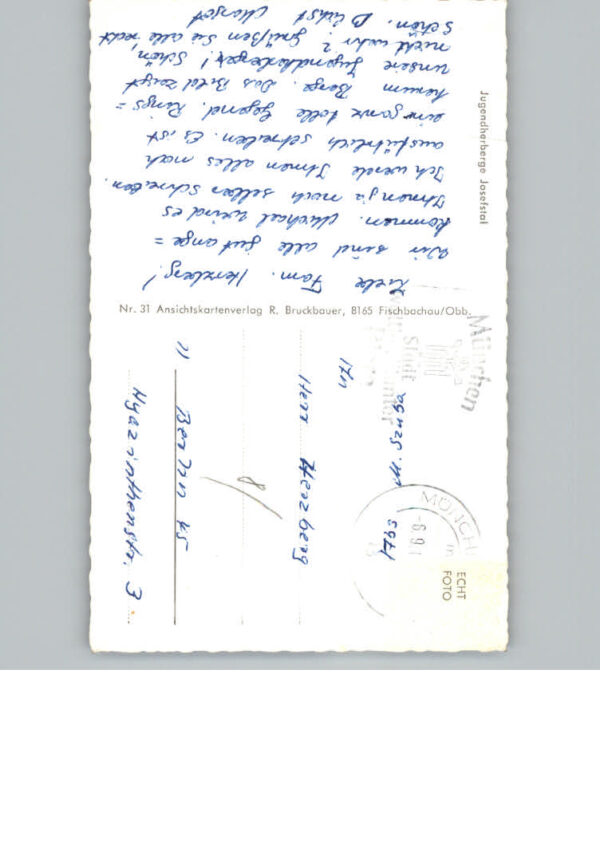 Jugendherberge Josefstal
Liebe Fam. Herzberg!
Wir sind alle gut ange=
kommen. Michael wird es
Ihnen ja noch selber schreiben.
Ich werde Ihnen alles noch
ausführlich schreiben. Es ist
eine ganz tolle Gegend. Rings=
herum Berge. Das Bild zeigt
unsere Jugendherberge! Schön,
nicht wahr? Grüßen Sie alle recht
schön.
Nr. 31 Ansichtskartenverlag R. Bruckbauer, 8165 Fischbachau/Obb.
München
Stadt
MÜNCH
ECHT
FOTO
M. Szuba
An
Herrn Herzberg
8/
1) Berlin 45
Hyazinthenstr. 3